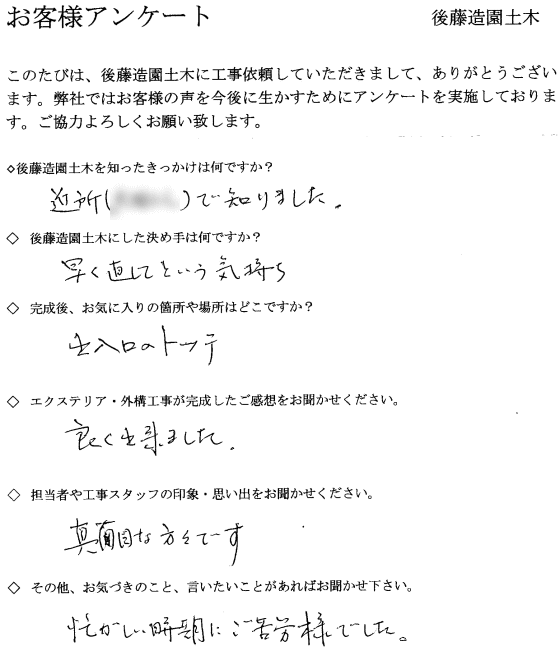 お客様アンケート 後藤造園土木
このたびは、後藤造園土木に工事依頼していただきまして、ありがとうござい
ます。弊社ではお客様の声を今後に生かすためにアンケートを実施しておりま
す。ご協力よろしくお願い致します。
◇後藤造園土木を知ったきっかけは何ですか？
近所( )で知りました。
◇ 後藤造園土木にした決め手は何ですか？
早く直してという気持ち
◇ 完成後、お気に入りの箇所や場所はどこですか？
出入口のトッテ
◇ エクステリア・外構工事が完成したご感想をお聞かせください。
良く出来ました。
◇ 担当者や工事スタッフの印象・思い出をお聞かせください。
真面目な方々です
◇ その他、お気づきのこと、言いたいことがあればお聞かせ下さい。
忙がしい時期にご苦労様でした。